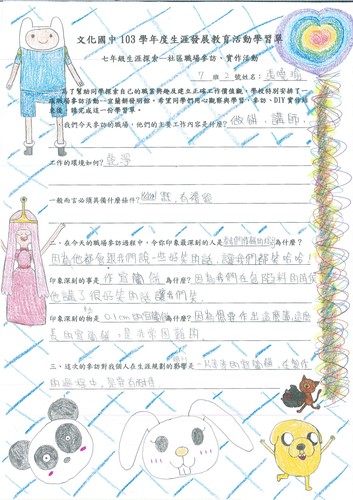 文化國中103學年度生涯發展教育活動學習單
七年級生涯探索—社區職場參訪、實作活動
7 班 2 號姓名:
為了幫助同學探索自己的職業興趣及建立正確工作價值觀,學校特別安排了一
職場參訪活動—宜蘭餅發明館。希望同學們用心觀察與學習,參訪、DIY實作結
束後,請完成這一份學習單。
我們今天參訪的職場,他們的主要工作內容是什麼? 做餅、講師
工作的環境如何? 乾淨
一般而言必須具備什麼條件? 幽默、有禮貌
二、在今天的職場參訪過程中,令你印象最深刻的人是 為什麼?
因為他都會跟我們說一些好笑的話,讓我們都笑哈哈!
印象深刻的事是 作宜蘭餅 為什麼? 因為我們在包餡料的時候
他講了很好笑的話讓我們笑
印象深刻的物是 0.1cm的宜蘭餅 為什麼? 因為要作出這麼薄,這麼
長的宜蘭餅,是非常困難的
三、這次的參訪對我個人在生涯規劃的影響是 一片薄薄的宜蘭餅,在製作
的過程中,